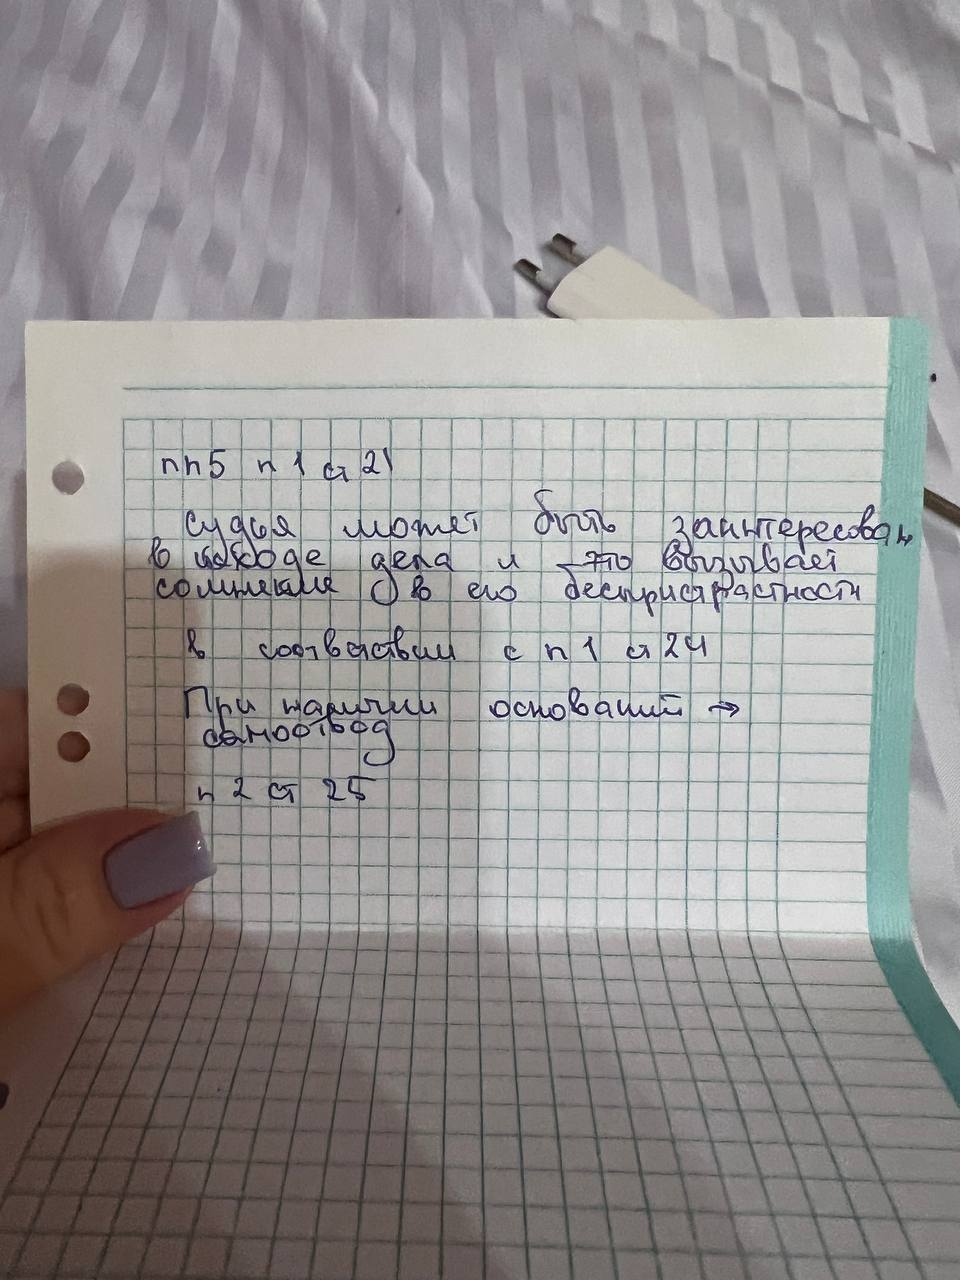 пп5 п 1 ст 21
судья может быть заинтересован
в исходе дела и это вызывает
сомнение в его беспристрастности
в соответствии с п 1 ст 24
При наличии оснований →
самоотвод
п 2 ст 25